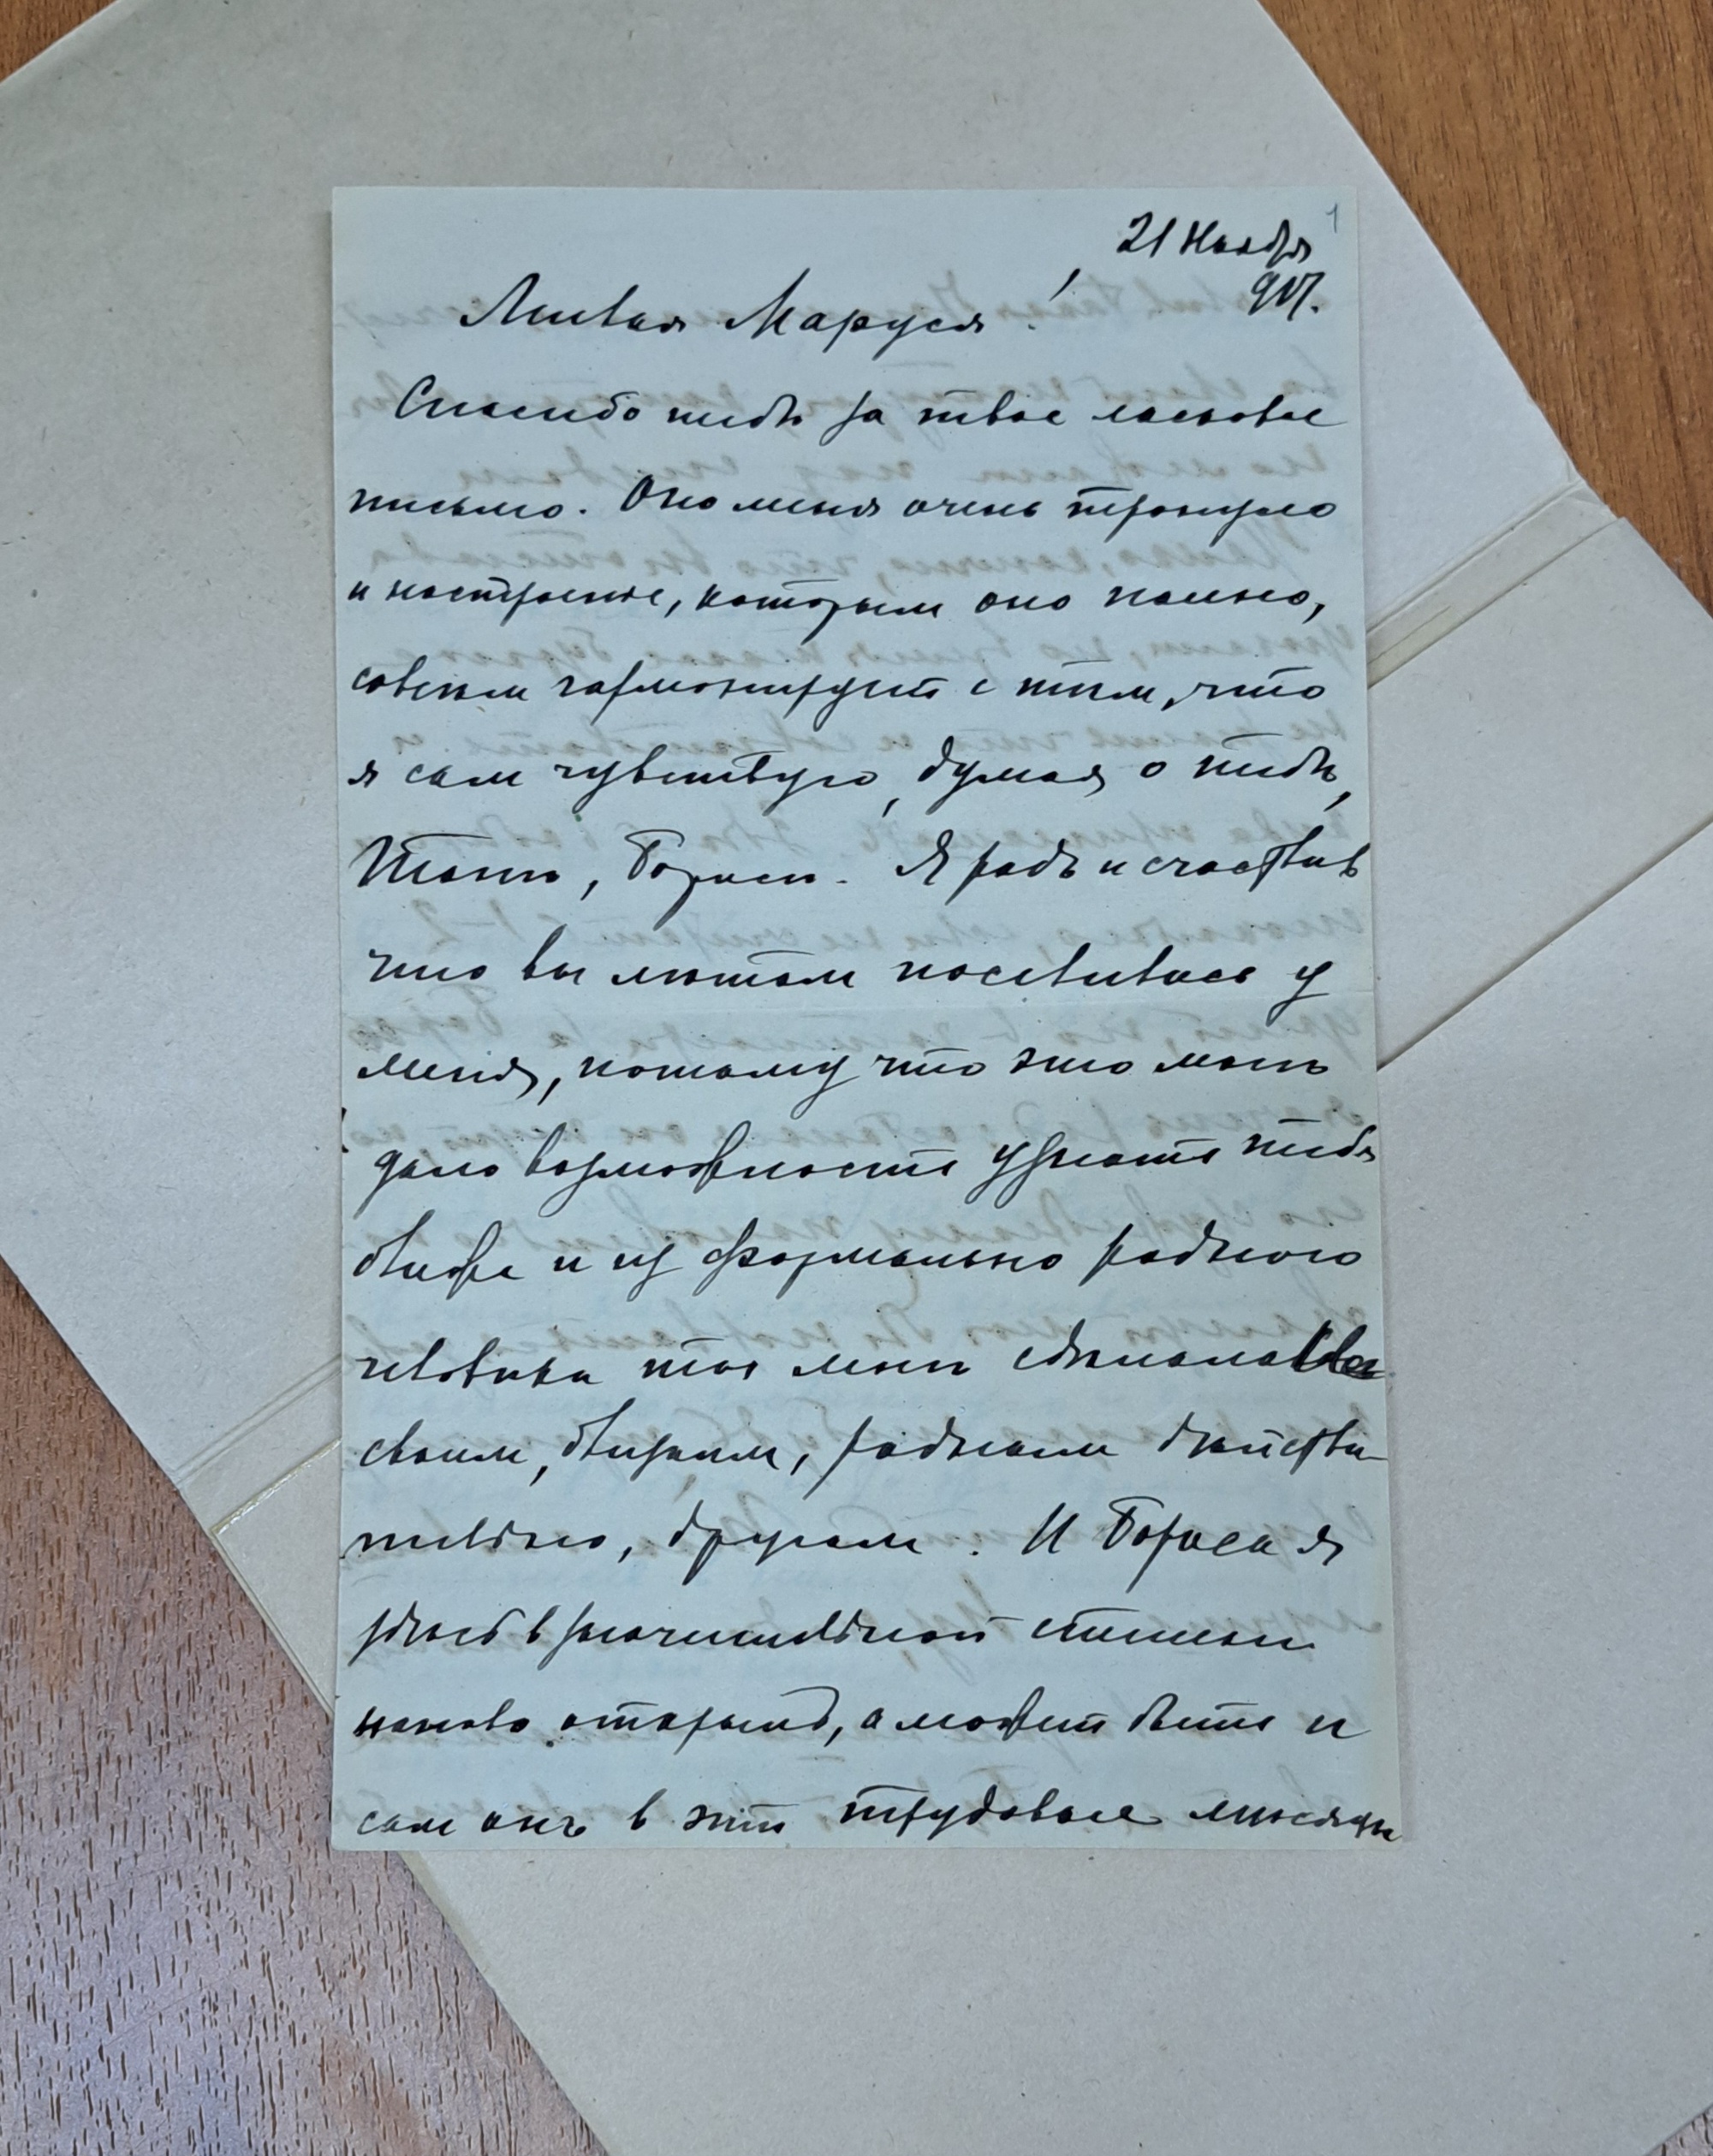 1
21 Ноября
917.
Милая Маруся!
Спасибо тебѣ за твое ласковое
письмо. Оно меня очень тронуло
и настроение, которым оно полно,
совсѣм гармонирует с тѣм, что
я сам чувствую, думая о тебѣ,
Танѣ, Борисѣ. Я радъ и счастлив
что вы лѣтом поселились у
меня, потому что это мнѣ
дало возможность узнать тебя
ближе и из формально родного
человѣка ты мнѣ сдѣлалась
своим, близким, родным дѣйстви-
тельно, другом. И Бориса я
здѣсь в значительной степени
наново открыл, а может быть и
сам он в эти трудовые мѣсяцы